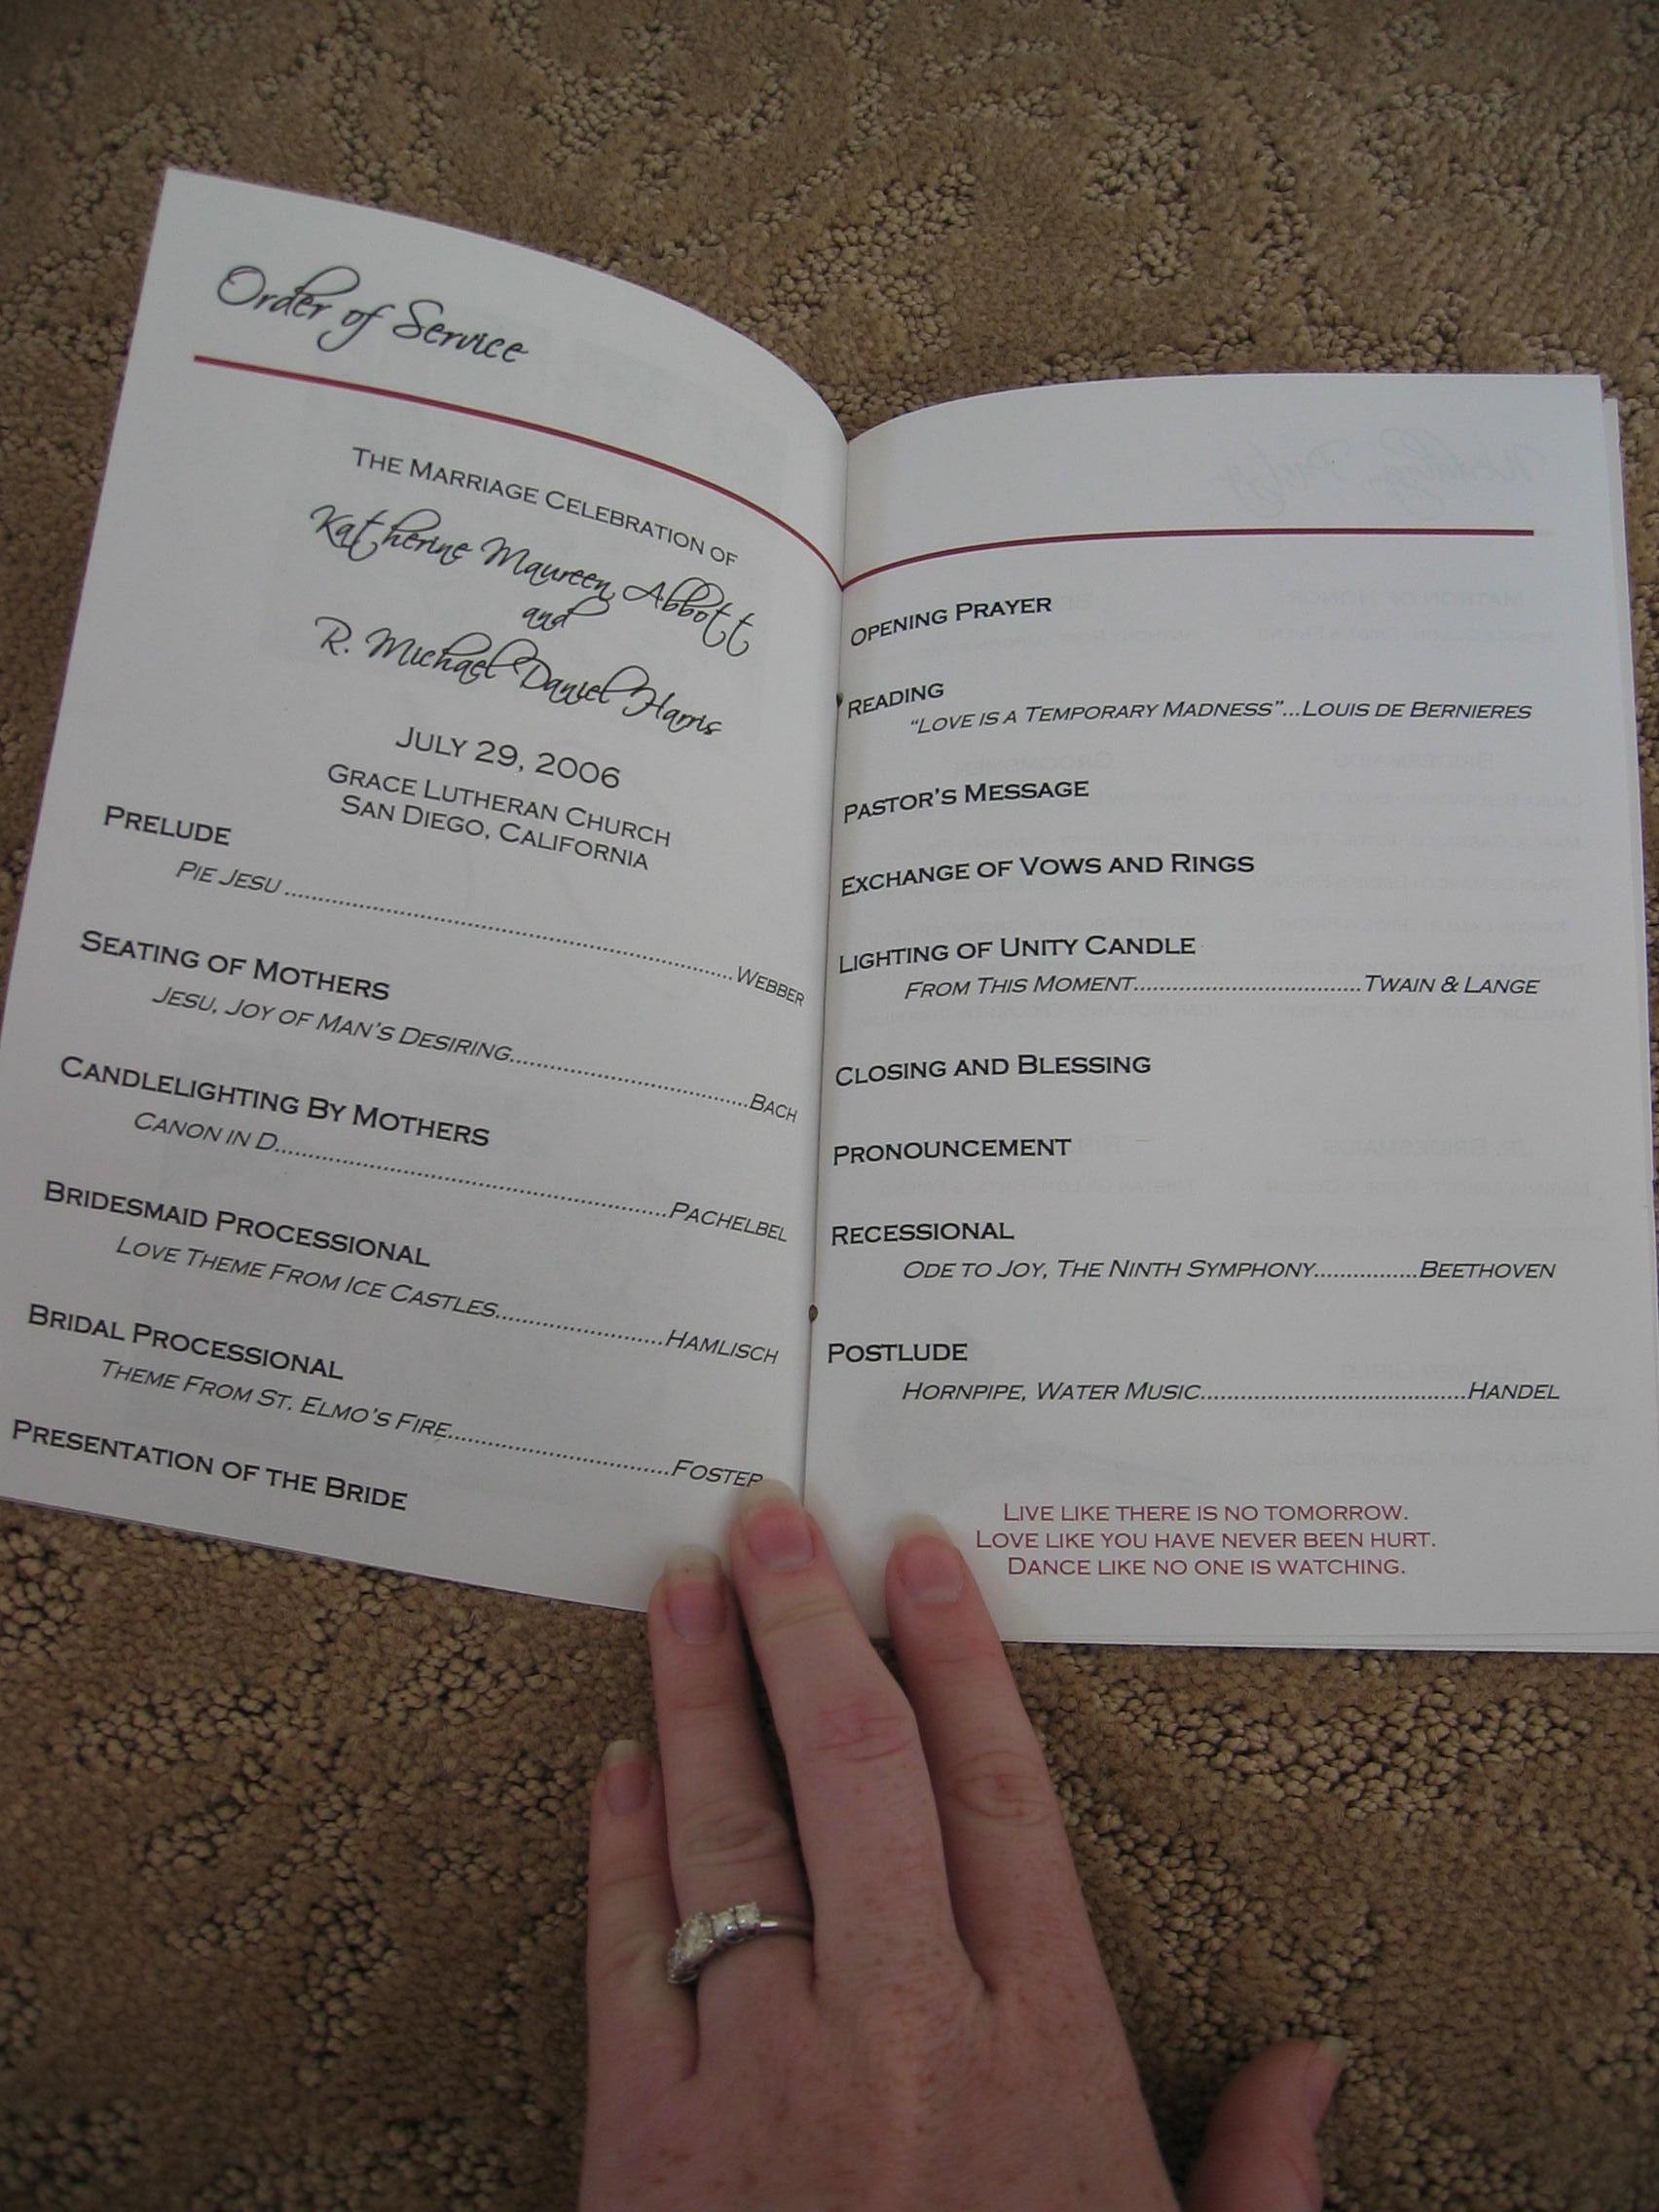 Order of Service
THE MARRIAGE CELEBRATION OF
Katherine Maureen Abbott
and
R. Michael Daniel Harris
JULY 29, 2006
GRACE LUTHERAN CHURCH
SAN DIEGO, CALIFORNIA
PRELUDE
PIE JESU ........................................................WEBBER
SEATING OF MOTHERS
JESU, JOY OF MAN'S DESIRING..............................BACH
CANDLELIGHTING BY MOTHERS
CANON IN D..................................................PACHELBEL
BRIDESMAID PROCESSIONAL
LOVE THEME FROM ICE CASTLES.....................HAMLISCH
BRIDAL PROCESSIONAL
THEME FROM ST. ELMO'S FIRE............................FOSTER
PRESENTATION OF THE BRIDE
OPENING PRAYER
READING
"LOVE IS A TEMPORARY MADNESS"...LOUIS DE BERNIERES
PASTOR'S MESSAGE
EXCHANGE OF VOWS AND RINGS
LIGHTING OF UNITY CANDLE
FROM THIS MOMENT..................................TWAIN & LANGE
CLOSING AND BLESSING
PRONOUNCEMENT
RECESSIONAL
ODE TO JOY, THE NINTH SYMPHONY................BEETHOVEN
POSTLUDE
HORNPIPE, WATER MUSIC........................................HANDEL
LIVE LIKE THERE IS NO TOMORROW.
LOVE LIKE YOU HAVE NEVER BEEN HURT.
DANCE LIKE NO ONE IS WATCHING.